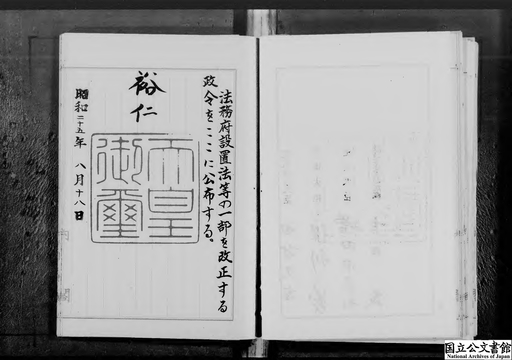 法務府設置法等の一部を改正する
政令をここに公布する。
裕仁
天皇
御璽
昭和二十五年 八月十八日
国立公文書館
National Archives of Japan